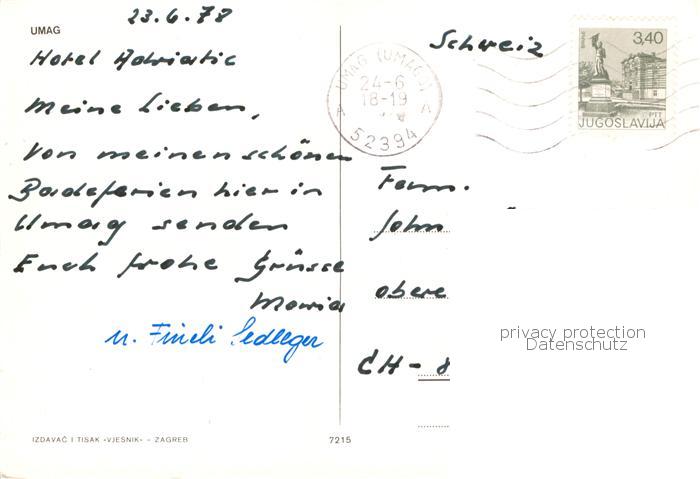 23.6.78
UMAG
Hotel Adriatic
Meine Lieben,
Von meinen schönen
Badeferien hier in
Umag senden
Euch frohe Grüsse
Maria
u. Fineli
IZDAVAČ I TISAK «VJESNIK» – ZAGREB
7215
UMAG (UMAGO)
24-6
18-19
A A
52394
3,40
PTT
JUGOSLAVIJA
Schweiz
Fam.
John
obere
CH - 8
privacy protection
Datenschutz